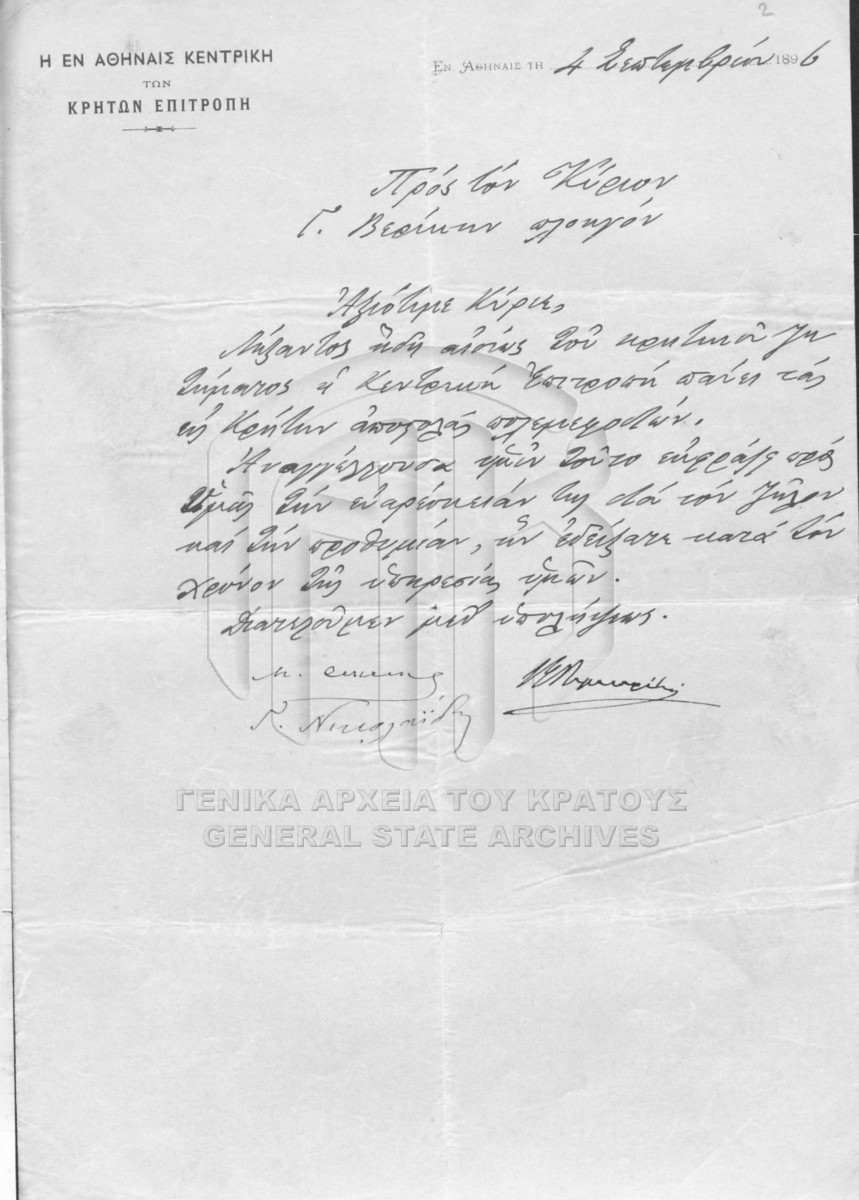 2
Η ΕΝ ΑΘΗΝΑΙΣ ΚΕΝΤΡΙΚΗ
ΤΩΝ
ΚΡΗΤΩΝ ΕΠΙΤΡΟΠΗ
ΕΝ ΑΘΗΝΑΙΣ ΤΗ 4 Σεπτεμβρίου 1896
Πρὸς τὸν Κύριον
Γ. Βερίκην πλοηγόν
Ἀξιότιμε Κύριε,
Λήξαντος ἤδη αἰσίως τοῦ κρητικοῦ ζη
τήματος ἡ Κεντρικὴ Ἐπιτροπὴ παύει τὰς
εἰς Κρήτην ἀποστολὰς πολεμεφοδίων.
Ἀναγγέλλουσα ὑμῖν τοῦτο ἐκφράζει πρὸς
Ὑμᾶς τὴν εὐαρέσκειάν της διὰ τὸν ζῆλον
καὶ τὴν προθυμίαν, ἣν ἐδείξατε κατὰ τὸν
χρόνον τῆς ὑπηρεσίας ὑμῶν.
Διατελοῦμεν μεθ' ὑπολήψεως.
Γ. Νικολαΐδης
ΓΕΝΙΚΑ ΑΡΧΕΙΑ ΤΟΥ ΚΡΑΤΟΥΣ
GENERAL STATE ARCHIVES